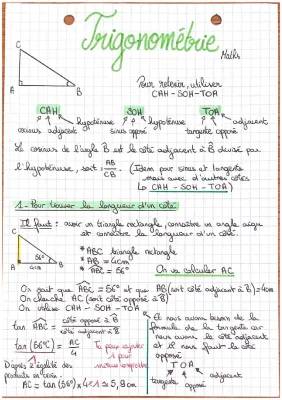 Trigonométrie
Maths
C
A
B
Pour retenir, utiliser
CAH - SOH - TOA
CAH SOH TOA
hypoténuse hypoténuse adjacent
cosinus adjacent sinus opposé tangente opposé
Le cosinus de l'angle B est le côté adjacent à B divisé par
l'hypoténuse, soit : AB/CB. (Idem pour sinus et tangente
mais avec d'autres côtés
↳ CAH - SOH - TOA)
1 - Pour trouver la longueur d'un côté
Il faut : avoir un triangle rectangle, connaître un angle aigu
et connaître la longueur d'un côté.
C
56°
A 4cm B
* ABC triangle rectangle
* AB = 4cm
* ABC = 56°
On va calculer AC
On sait que ABC = 56° et que AB (soit côté adjacent à B) = 4cm
On cherche AC (soit côté opposé à B)
On utilise CAH - SOH - TOA
tan ABC = côté opposé à B / côté adjacent à B
tan (56°) / 1 = AC / 4
Tu peux ajouter 1 pour
D'après l'égalité des
produits en croix :
AC = tan (56°) × 4 ÷ 1 ≈ 5,9cm
Et nous avons besoin de la
formule de la tangente car
nous avons le côté adjacent
et il nous faut le côté
opposé
TOA
tangente opposé adjacent